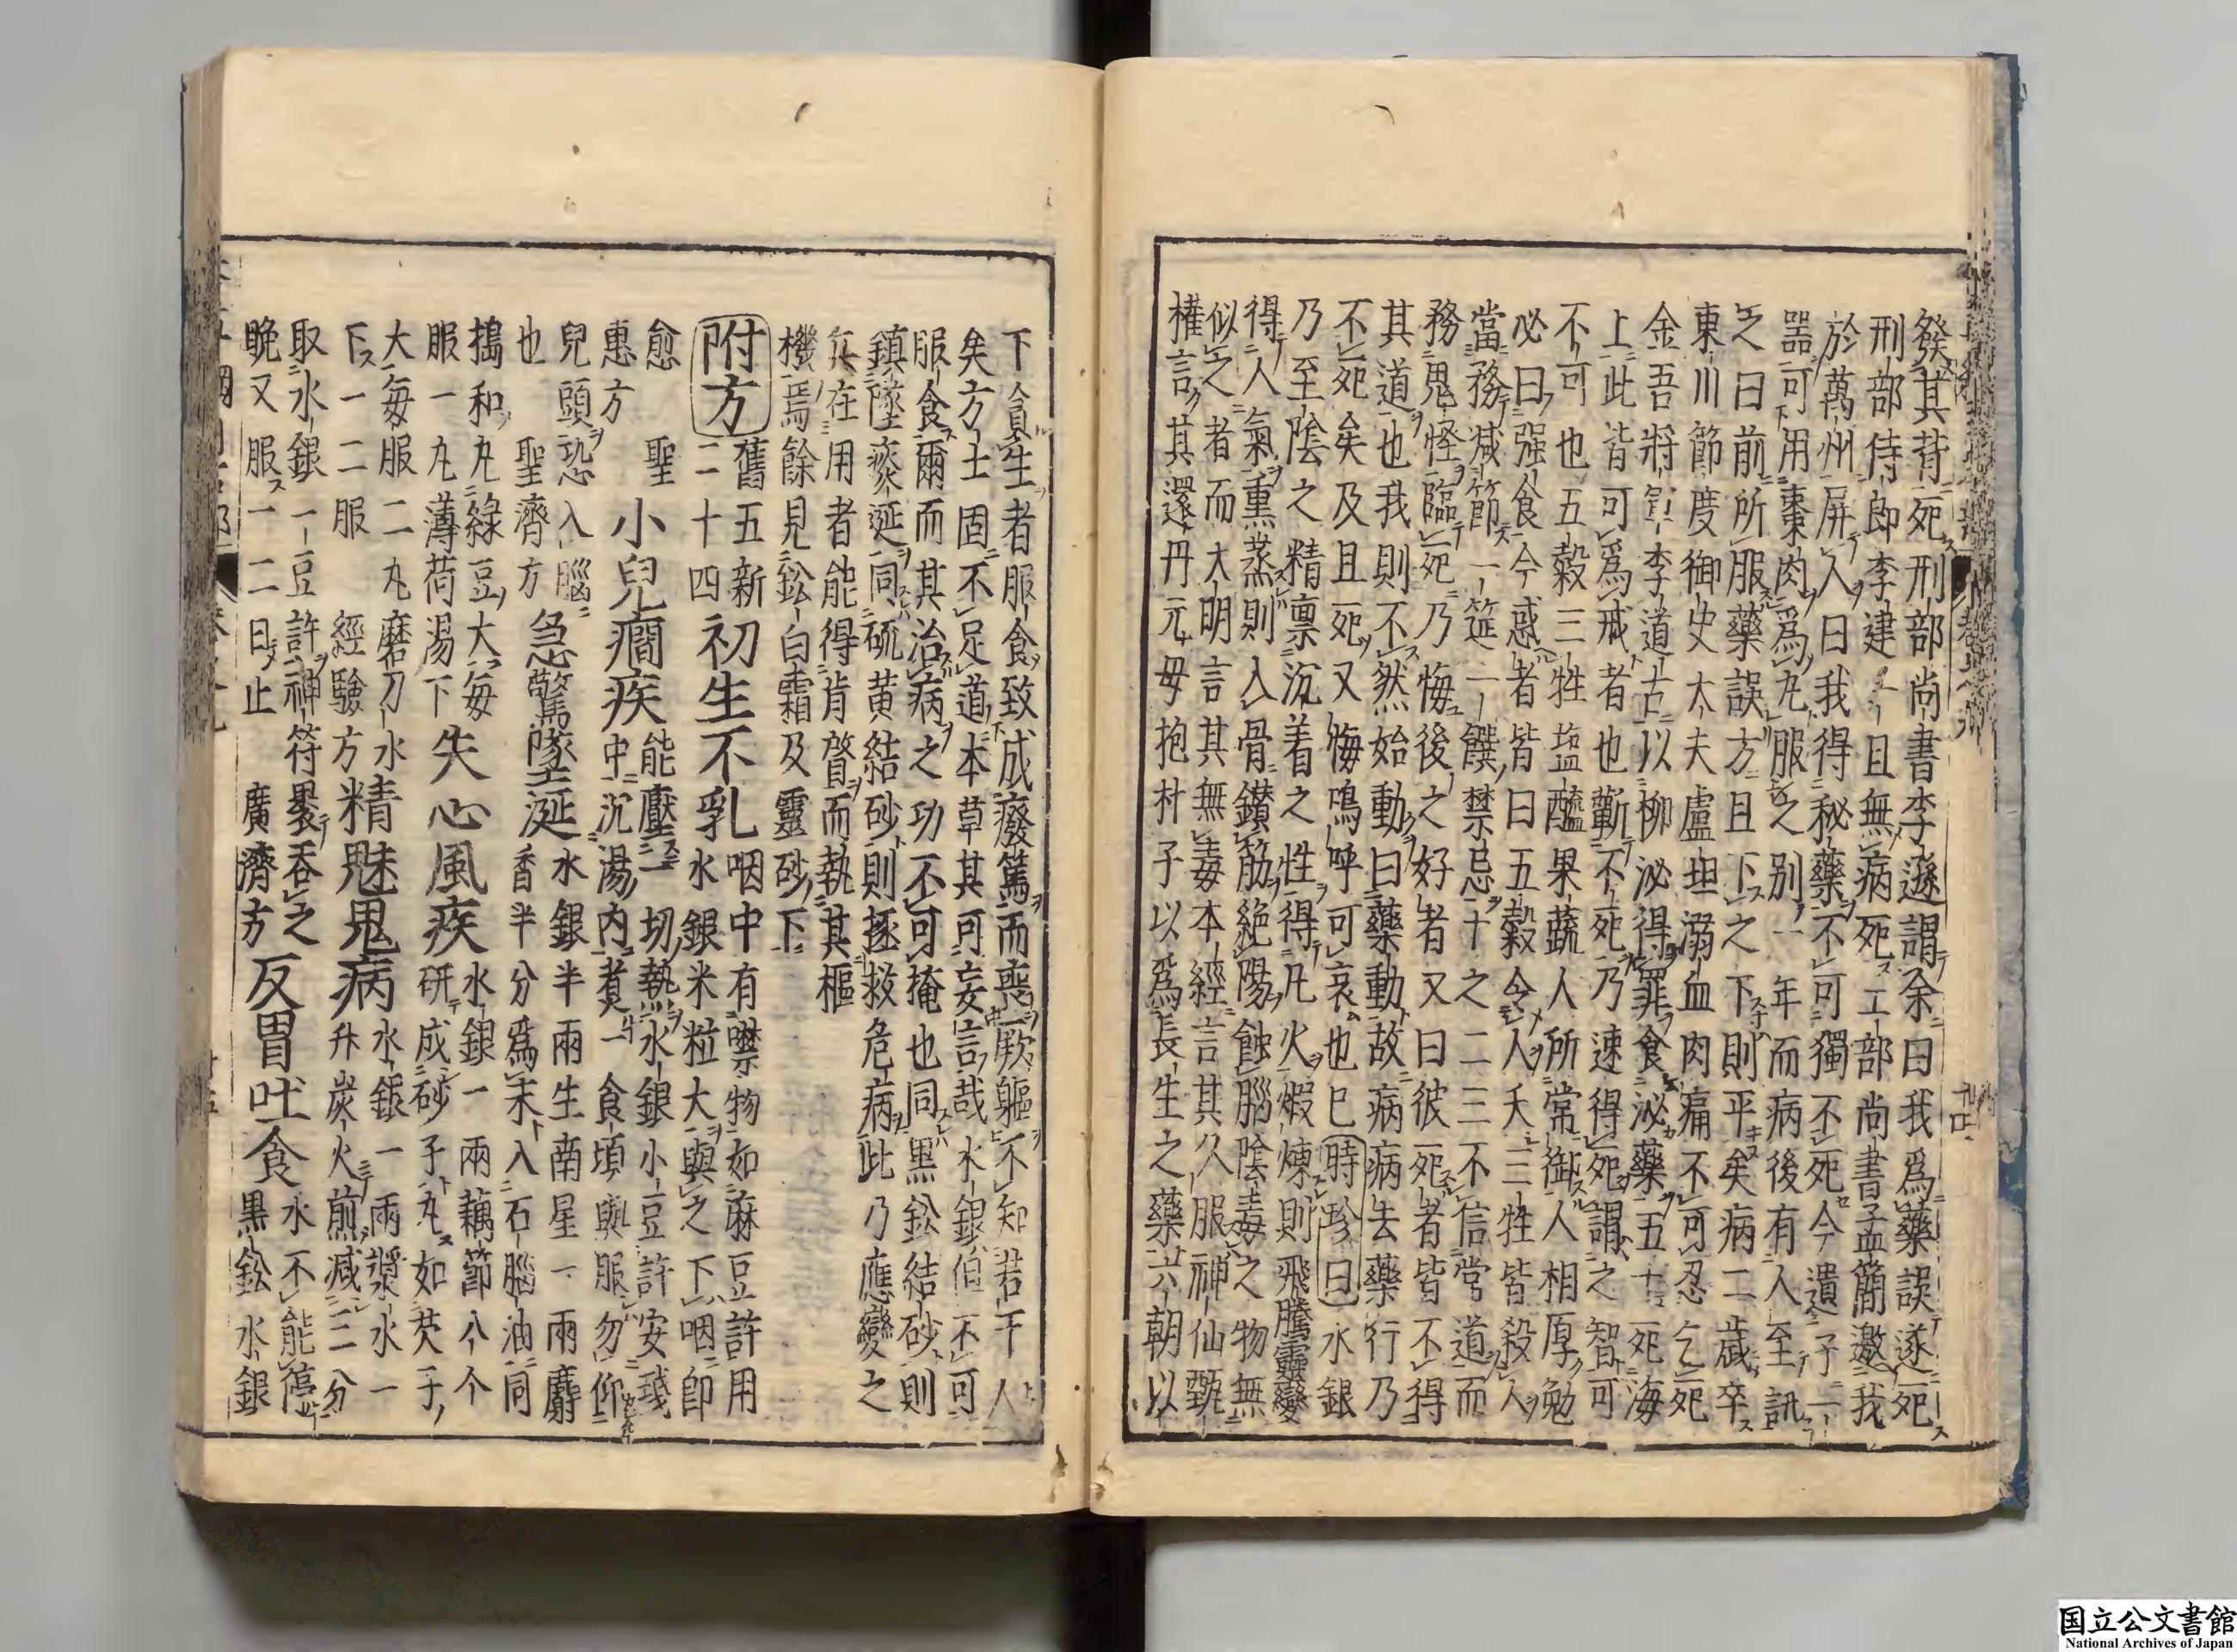 發其背死刑部尚書李遜謂余曰我爲藥誤遂死
刑部侍郎李建一且無病死工部尚書孟簡邀我
於萬州屏人曰我得秘藥不可獨不死今遺子一
器可用棗肉爲丸服之別一年而病後有人至訊
之曰前所服藥誤方且下之下則平矣病二歲卒
東川節度御史大夫盧坦溺血肉痛不可忍乞死
金吾將軍李道古以柳泌得罪食泌藥五十死海
上此皆可爲戒者也蘄不死乃速得死謂之智可
不可也五穀三牲盐醯果蔬人所常御人相厚勉
必曰强食今惑者皆曰五穀令人夭三牲皆殺人
當務減節一筵之饌禁忌十之二三不信常道而
務鬼怪臨死乃悔後之好者又曰彼死者皆不得
其道也我則不然始動曰藥動故病病去藥行乃
不死矣及且死又悔嗚呼可哀也已時珍曰水銀
乃至陰之精稟沉着之性得凡火煆煉則飛騰靈變
得人氣熏蒸則入骨鑽筋絶陽蝕腦陰毒之物無
似之者而大明言其無毒本經言其久服神仙甄
權言其還丹元母抱朴子以爲長生之藥六朝以
下貪生者服食致成廢篤而喪厥軀不知若干人
矣方士固不足道本草其可妄言哉水銀但不可
服食爾而其治病之功不可掩也同黑鈆結砂則
鎮墜痰涎同硫黄結砂則拯救危病此乃應變之
兵在用者能得肯綮而執其樞
機焉餘見鈆白霜及靈砂下
附方 舊五新二十四 初生不乳 咽中有噤物如麻豆許用水銀米粒大與之下咽即
愈 聖惠方 小兒癎疾 能壓一切熱水銀小豆許安琖中沉湯内煮一食頃與服勿仰
兒頭恐入腦也 聖濟方 急驚墜涎 水銀半兩生南星一兩麝香半分爲末入石腦油同
搗和丸綠豆大每服一丸薄荷湯下 失心風疾 水銀一兩藕節八个研成砂子丸如芡子
大每服二丸磨刀水下一二服 經驗方 精魅鬼病 水銀一兩漿水一升炭火煎減二分
取水銀一豆許神符裹吞之晚又服一二日止 廣濟方 反胃吐食 水不能停黒鈆水銀
国立公文書館
National Archives of Japan